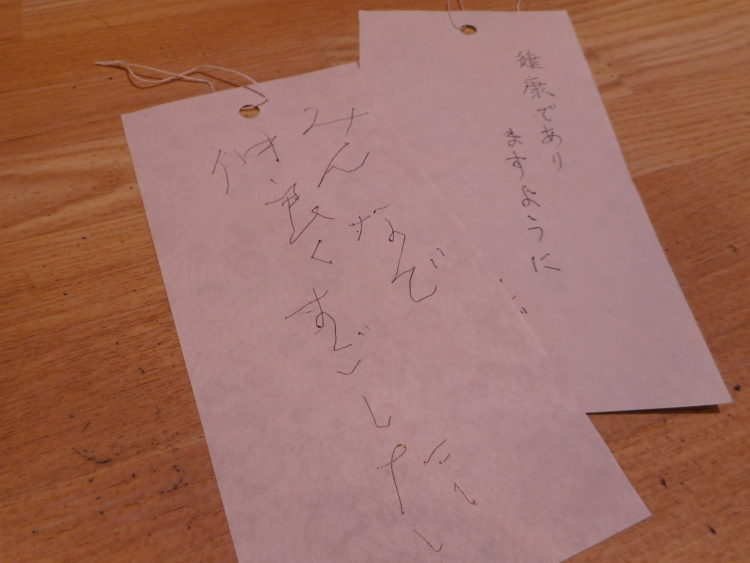 みんなで
仲良くすごしたい
健康であり
ますように